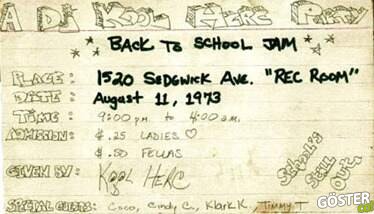 A DJ KOOL HERC PARTY
BACK TO SCHOOL JAM
PLACE: 1520 SEDGWICK AVE. "REC ROOM"
DATE: August 11, 1973
TIME: 9:00 p.m. to 4:00 a.m.
ADMISSION: $.25 LADIES ♡
$.50 FELLAS
GIVEN BY: KOOL HERC
SPECIAL GUESTS: Coco, Cindy C., Klark K., Timmy T
School's Still Out!
GÖSTER